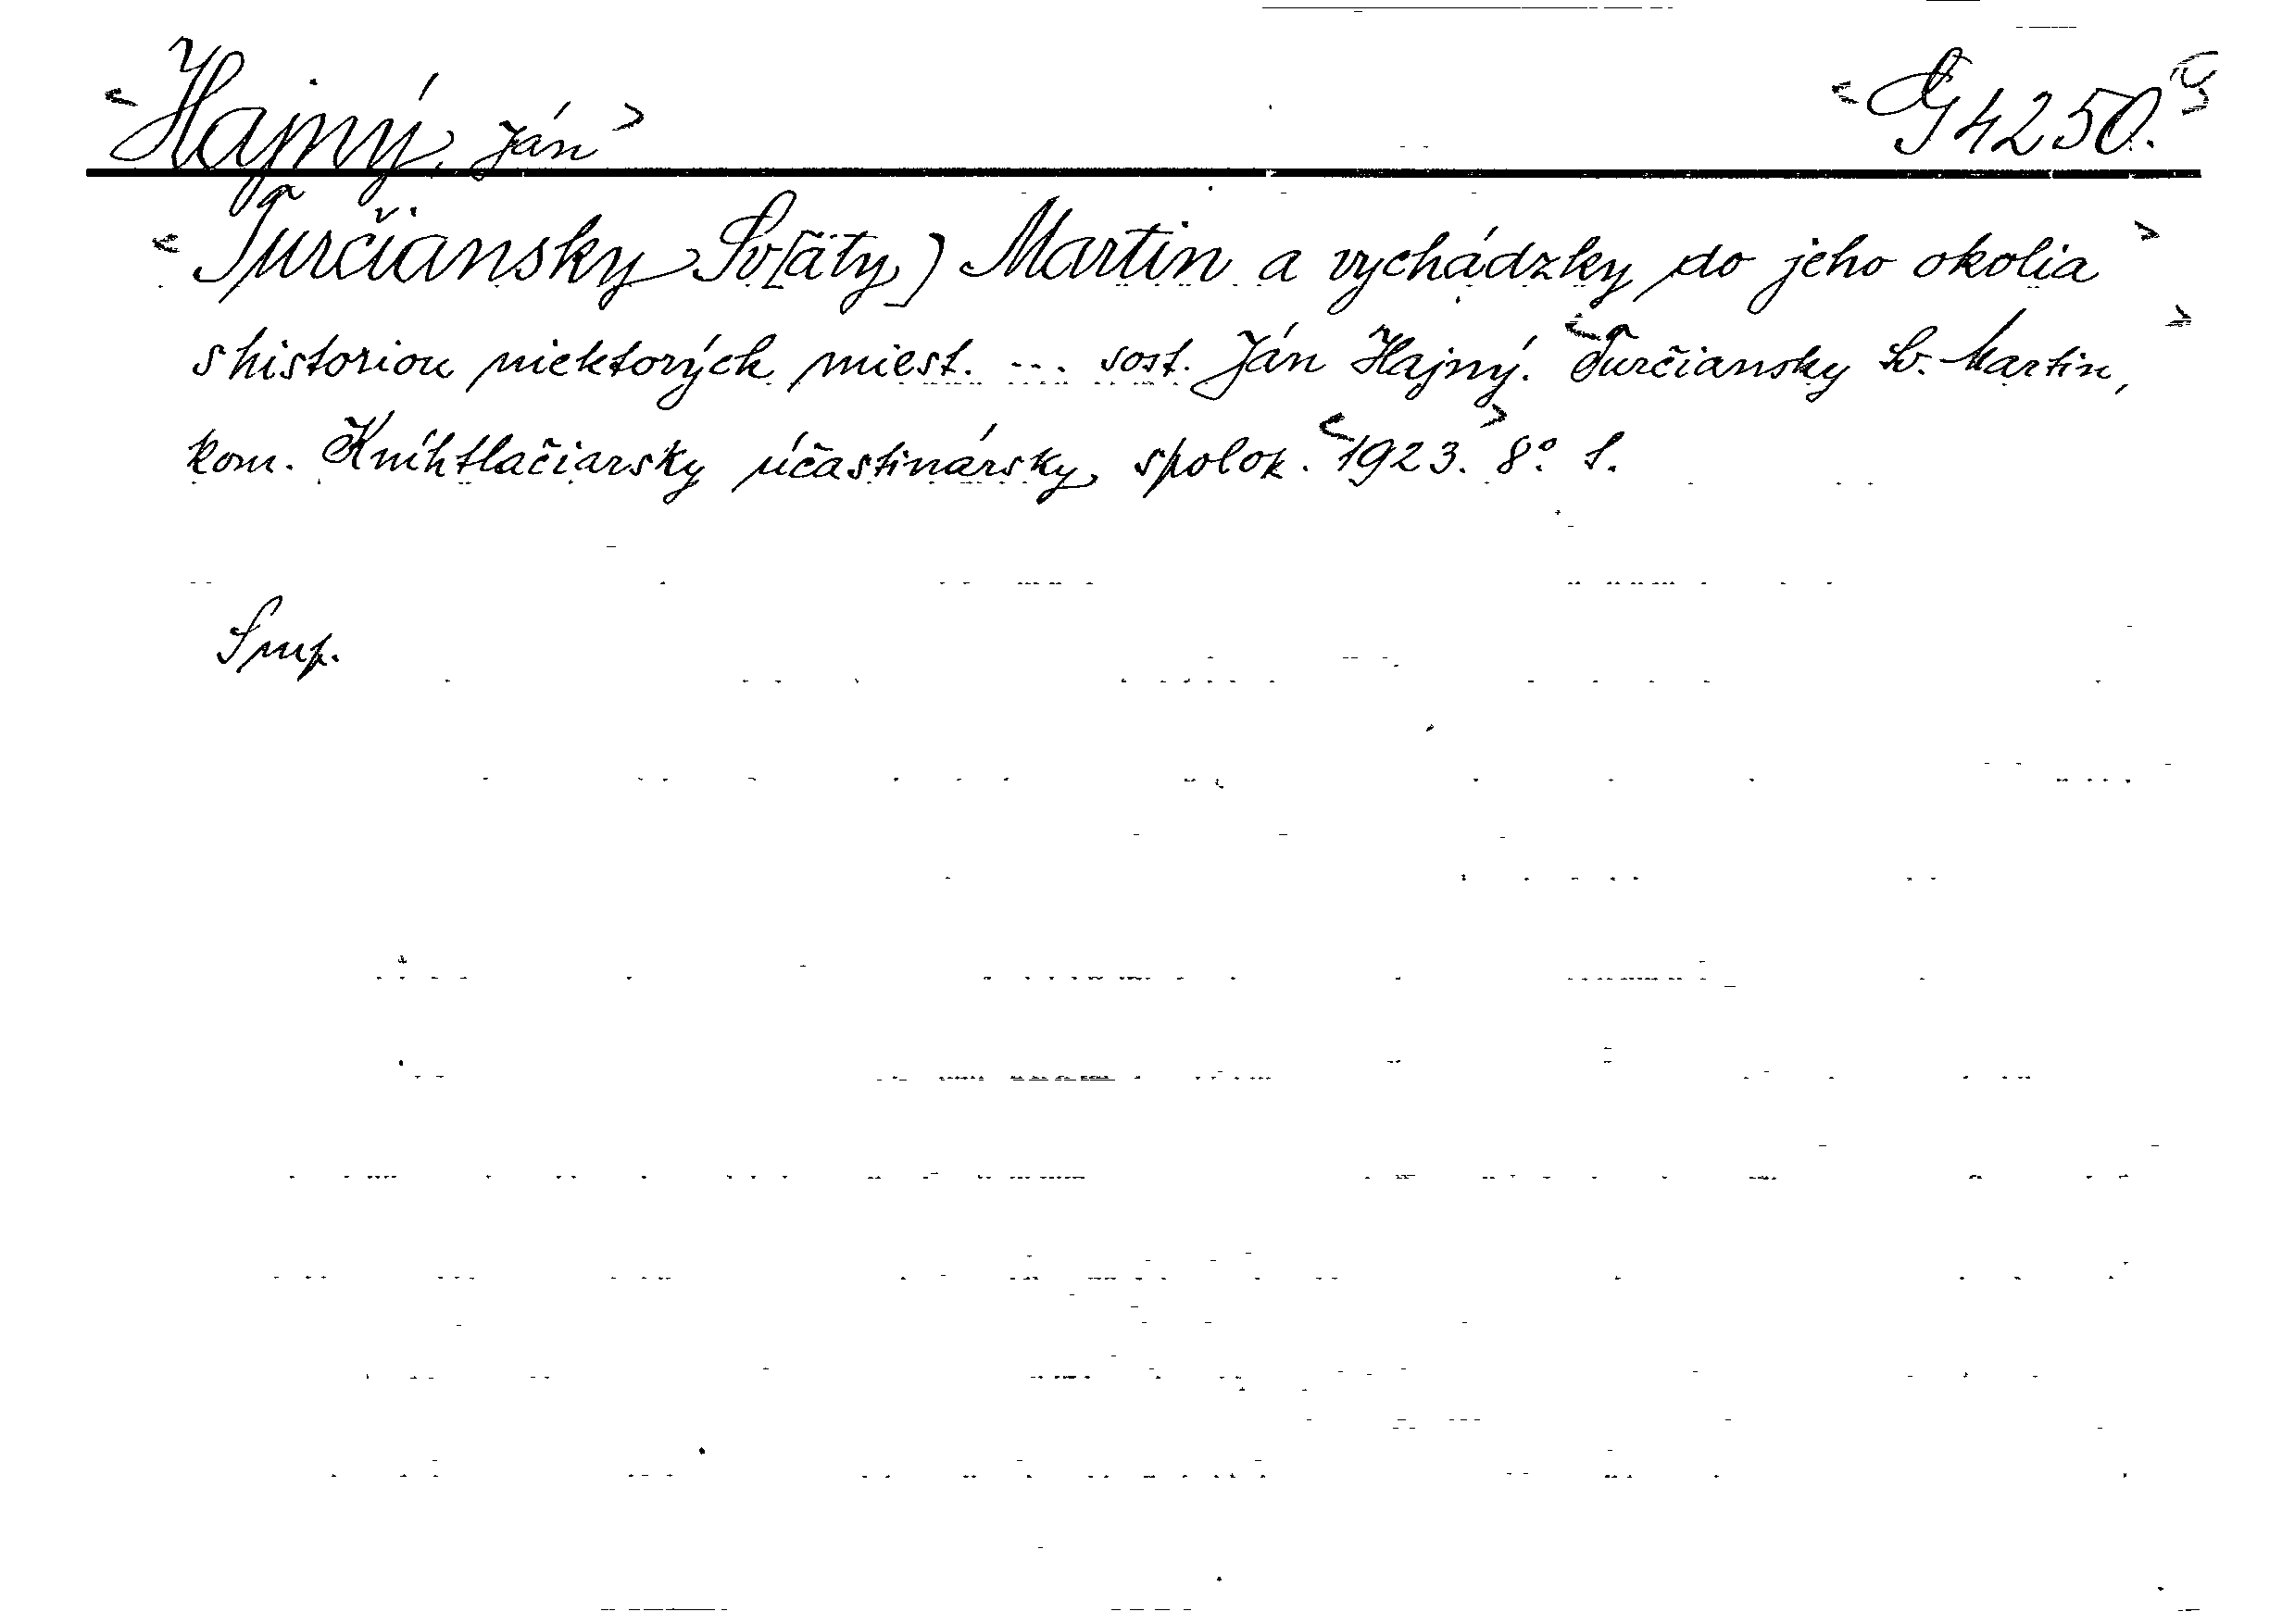 <Hajný, Ján> <G 4250.>
<Turčiansky Sv[äty] Martin a vychádzky do jeho okolia>
s historiou niektorých miest. ... sost. Ján Hajný. <Turčiansky Sv. Martin,>
kom. Kníhtlačiarsky účastinársky spolok. <1923.> 8° S.